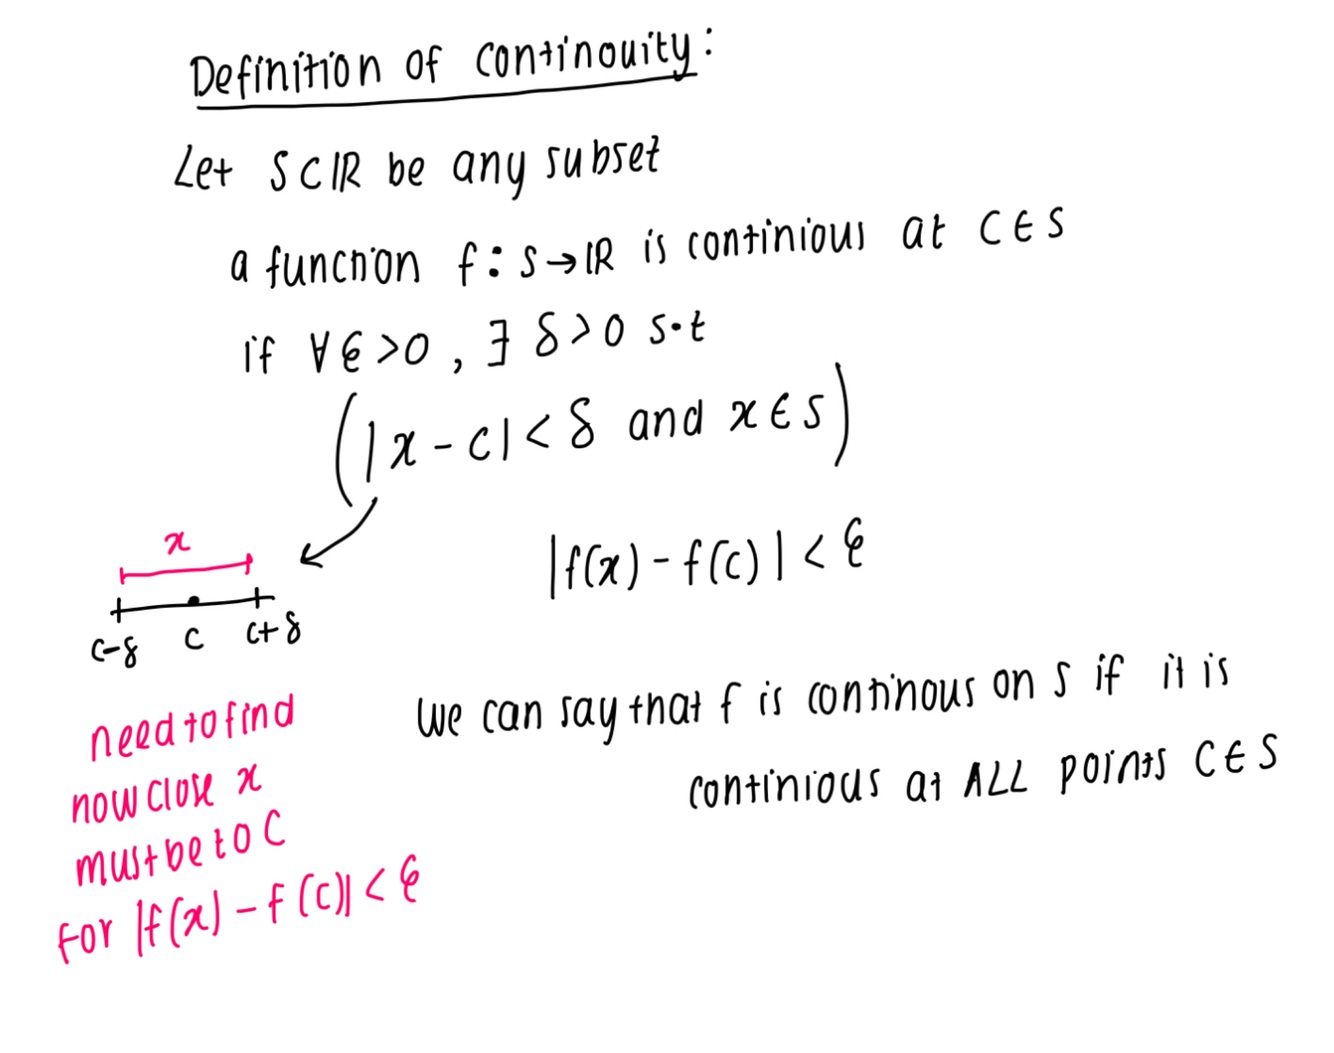 Definition of continouity:
Let S⊂ℝ be any subset
a function f: S→ℝ is continious at C∈S
if ∀ε>0, ∃ δ>0 s.t
(|x-c|<δ and x∈S)
|f(x)-f(c)|<ε
x
c-δ c c+δ
need to find
how close x
must be to C
for |f(x)-f(c)|<ε
we can say that f is continous on S if it is
continious at ALL points C∈S